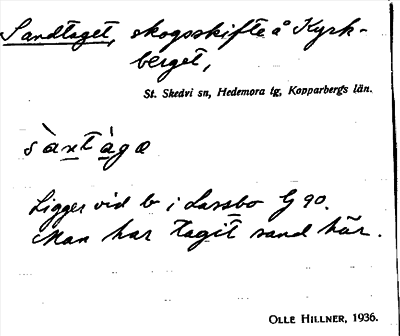 Sandtaget, skogsskifte å Kyrk-
berget,
St. Skedvi sn, Hedemora tg, Kopparbergs län.
sàntàgæ
Ligger vid b i Lassbo G 90.
Man har tagit sand här.
OLLE HILLNER, 1936.